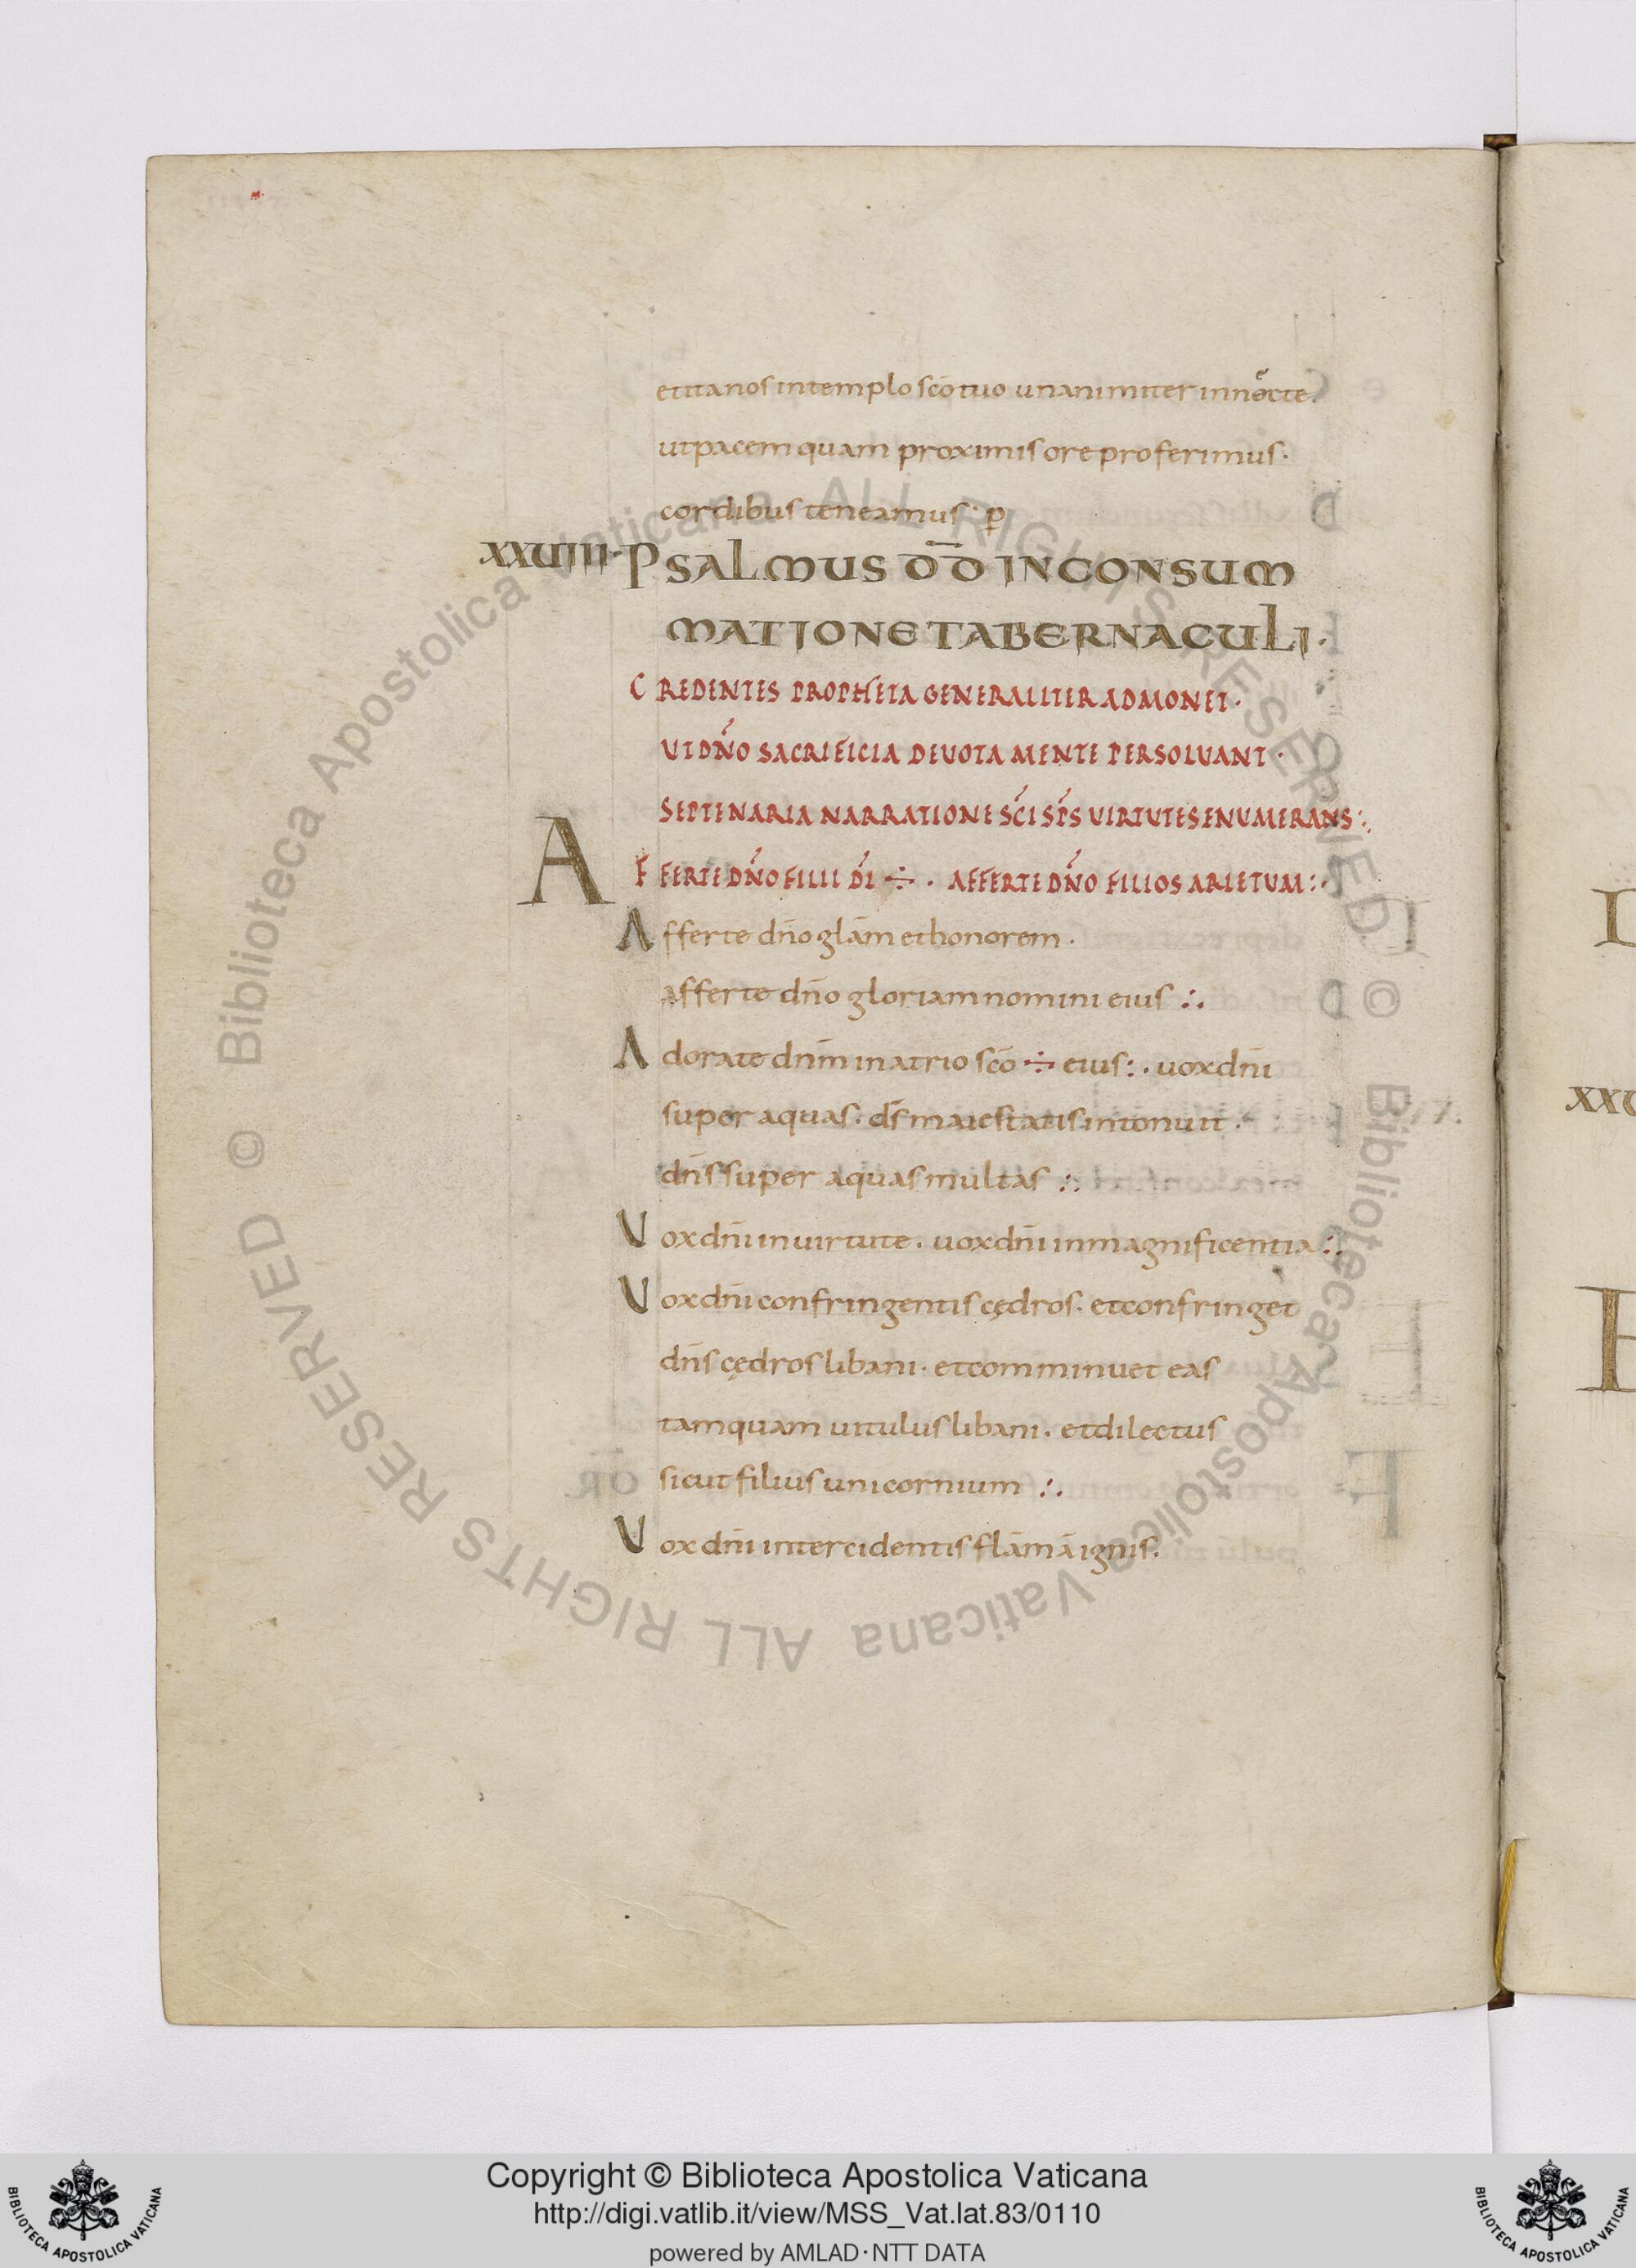 et ita nos in templo sc̄o tuo unanimiter innecte.
ut pacem quam proximis ore proferimus·
cordibus teneamus· p̲
XXUIIII· PSALMUS D̄D IN CONSUM
MATIONE TABERNACULI·
CREDENTES PROPHETA GENERALITER ADMONET·
UT DN̄O SACRIFICIA DEUOTA MENTE PERSOLUANT·
SEPTENARIA NARRATIONE SC̄I SP̄S UIRTUTES ENUMERANS:.
AFFERTE DN̄O FILII D̄I ÷ · AFFERTE DN̄O FILIOS ARIETUM:·
Afferte dn̄o glām et honorem·
afferte dn̄o gloriam nomini eius ∴
Adorate dn̄m in atrio sc̄o ÷ eius:· uox dn̄i
super aquas· d̄s maiestatis intonuit·
dn̄s super aquas multas ∴
Uox dn̄i in uirtute· uox dn̄i in magnificentia:·
Uox dn̄i confringentis cędros· et confringet
dn̄s cędros libani· et comminuet eas
tamquam uitulus libani· et dilectus
sicut filius unicornium ∴
Uox dn̄i intercidentis flāmā ignis·
Biblioteca Apostolica Vaticana ALL RIGHTS RESERVED ©
Biblioteca Apostolica Vaticana ALL RIGHTS RESERVED ©
Copyright © Biblioteca Apostolica Vaticana
http://digi.vatlib.it/view/MSS_Vat.lat.83/0110
powered by AMLAD·NTT DATA
BIBLIOTECA APOSTOLICA VATICANA
BIBLIOTECA APOSTOLICA VATICANA